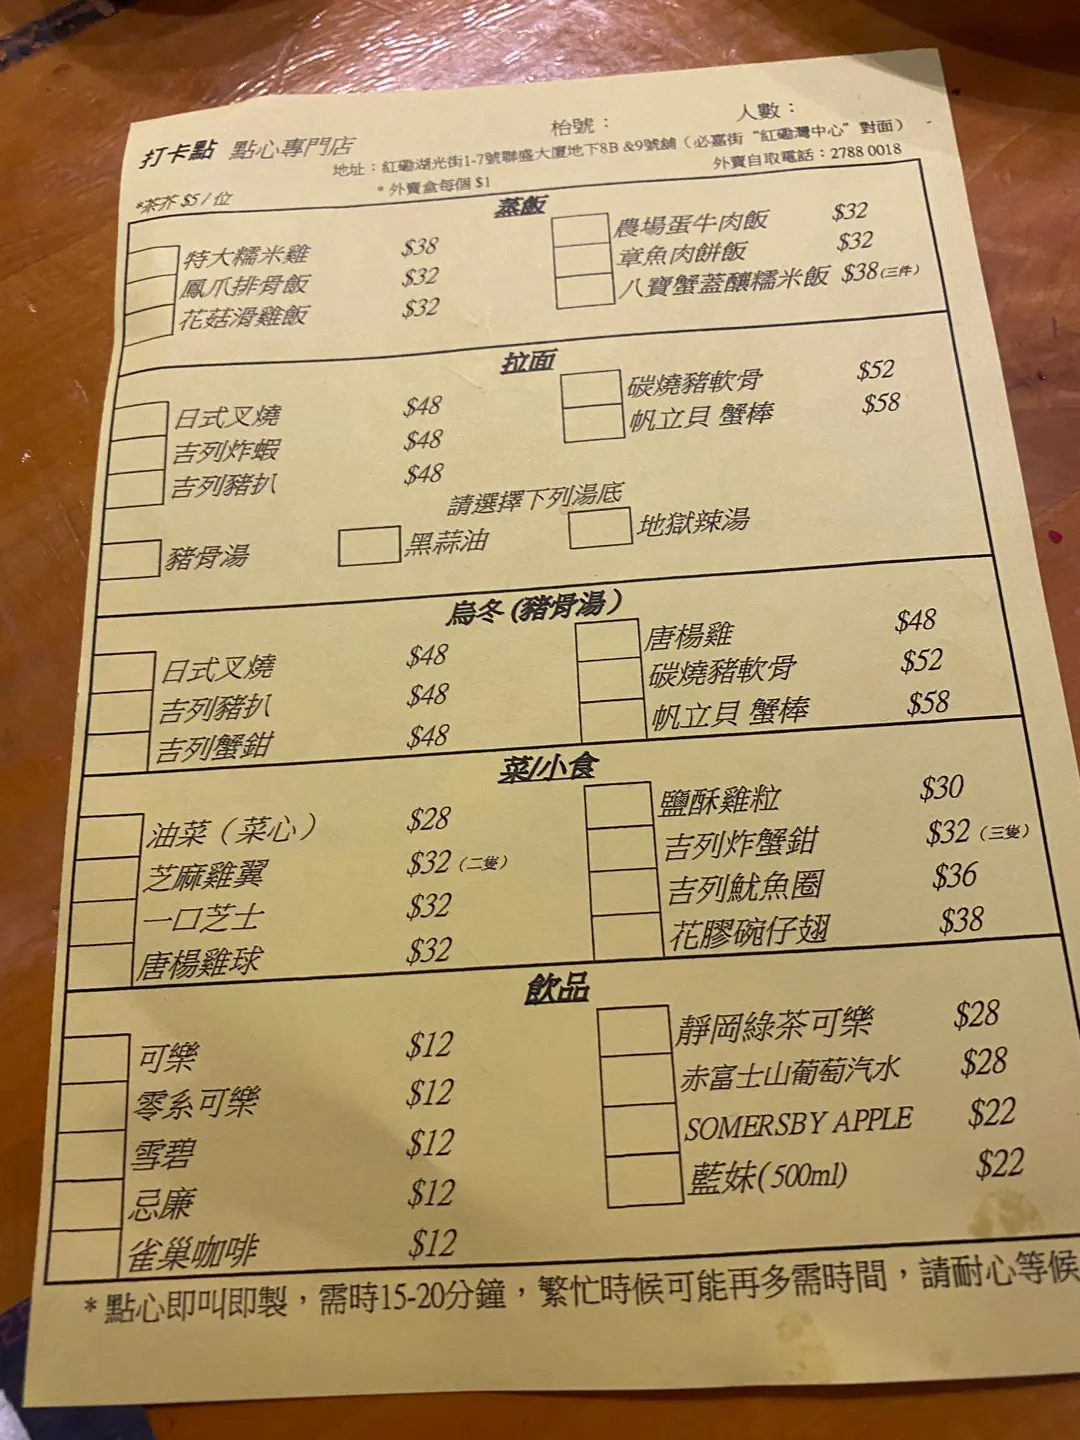 打卡點 點心專門店
枱號： 人數：
地址：紅磡湖光街1-7號聯盛大廈地下8B &9號舖（必嘉街 “紅磡灣中心” 對面）
*茶芥 $5 / 位 * 外賣盒每個 $1 外賣自取電話：2788 0018
蒸飯
特大糯米雞 $38 農場蛋牛肉飯 $32
鳳爪排骨飯 $32 章魚肉餅飯 $32
花菇滑雞飯 $32 八寶蟹蓋釀糯米飯 $38(三件)
拉面
日式叉燒 $48 碳燒豬軟骨 $52
吉列炸蝦 $48 帆立貝 蟹棒 $58
吉列豬扒 $48
請選擇下列湯底
豬骨湯 黑蒜油 地獄辣湯
烏冬 (豬骨湯）
日式叉燒 $48 唐楊雞 $48
吉列豬扒 $48 碳燒豬軟骨 $52
吉列蟹鉗 $48 帆立貝 蟹棒 $58
菜/小食
油菜（菜心） $28 鹽酥雞粒 $30
芝麻雞翼 $32（二隻） 吉列炸蟹鉗 $32（三隻）
一口芝士 $32 吉列魷魚圈 $36
唐楊雞球 $32 花膠碗仔翅 $38
飲品
可樂 $12 靜岡綠茶可樂 $28
零系可樂 $12 赤富士山葡萄汽水 $28
雪碧 $12 SOMERSBY APPLE $22
忌廉 $12 藍妹(500ml) $22
雀巢咖啡 $12
*點心即叫即製，需時15-20分鐘，繁忙時候可能再多需時間，請耐心等候